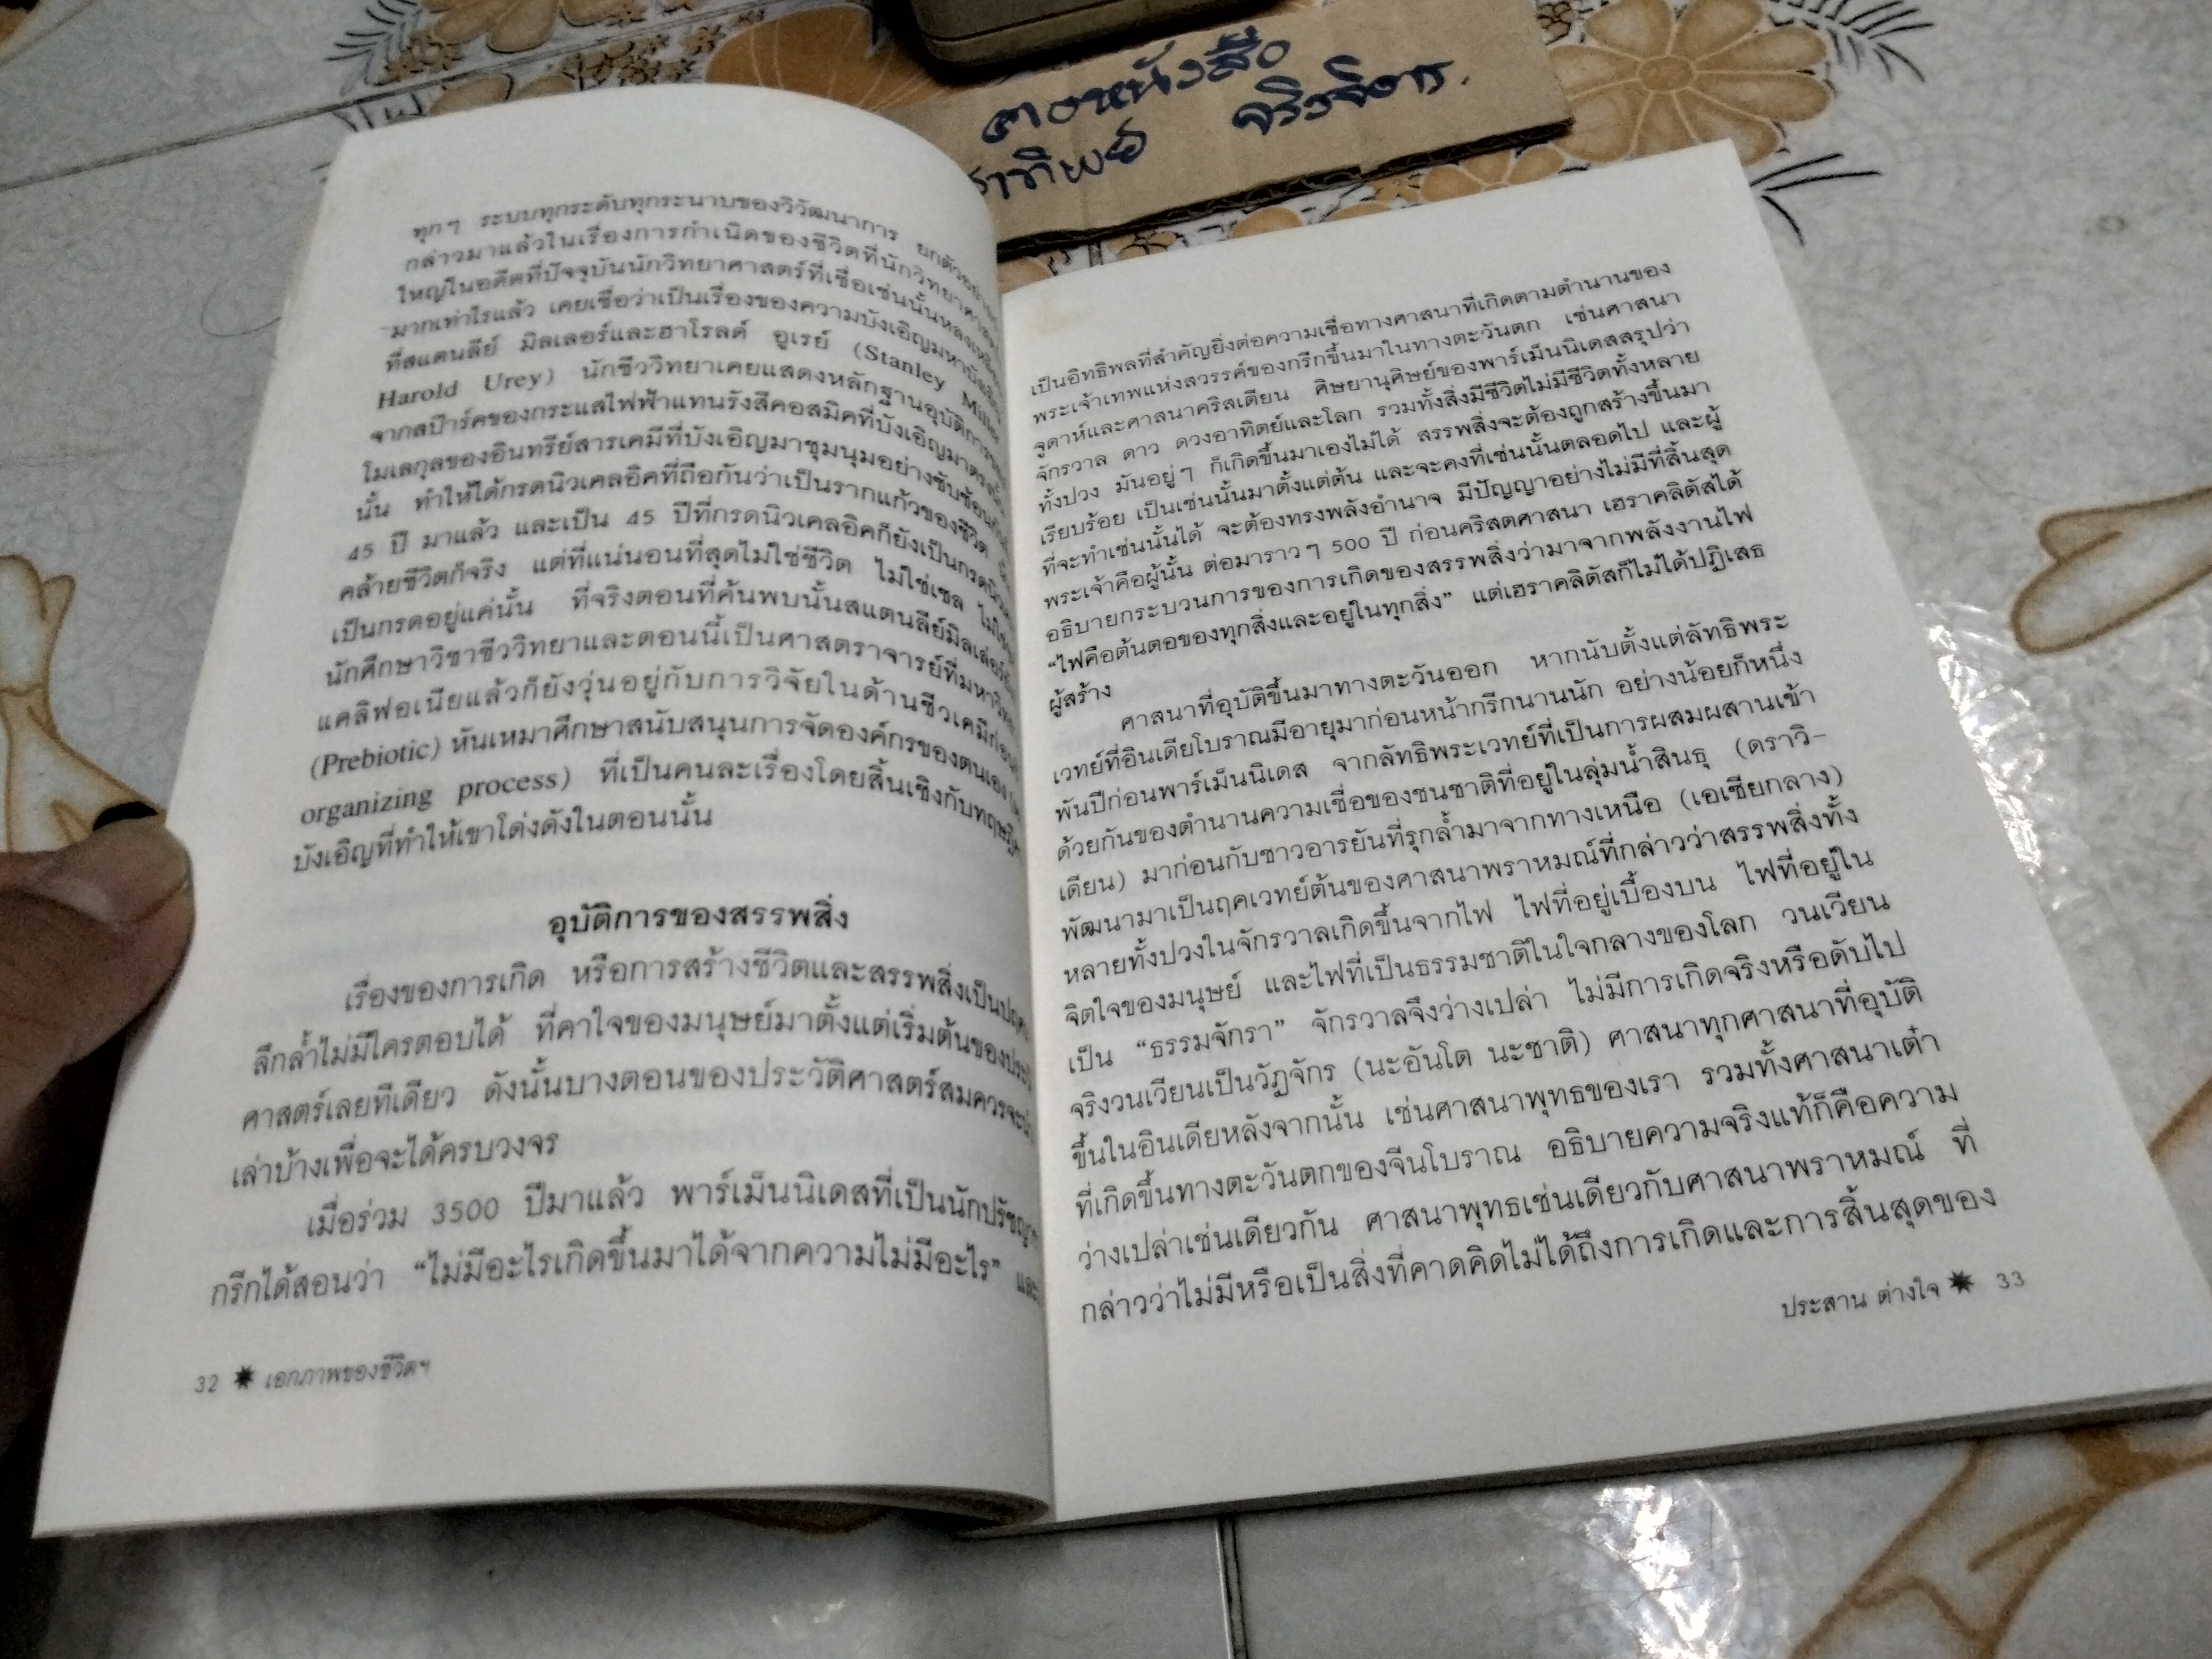 ตองหนังสือ
ราทิพย์ จริงจิตร.
ทุกๆ ระบบทุกระดับทุกระนาบของวิวัฒนาการ
กล่าวมาแล้วในเรื่องการกำเนิดของชีวิตที่นักวิทยาศาสตร์
ใหญ่ในอดีตที่ปัจจุบันนักวิทยาศาสตร์ที่เชื่อเช่นนั้นหลงเหลือ
มากเท่าไรแล้ว เคยเชื่อว่าเป็นเรื่องของความบังเอิญ
ที่สแตนลีย์ มิลเลอร์และฮาโรลด์ อูเรย์ (Stanley Miller
Harold Urey) นักชีววิทยาเคยแสดงหลักฐานอุบัติการ
จากสป๊าร์คของกระแสไฟฟ้าแทนรังสีคอสมิคที่บังเอิญมา
โมเลกุลของอินทรีย์สารเคมีที่บังเอิญมาชุมนุมอย่างซับซ้อน
นั้น ทำให้ได้กรดนิวเคลอิคที่ถือกันว่าเป็นรากแก้วของชีวิต
45 ปี มาแล้ว และเป็น 45 ปีที่กรดนิวเคลอิคก็ยังเป็น
คล้ายชีวิตก็จริง แต่ที่แน่นอนที่สุดไม่ใช่ชีวิต ไม่ใช่เซล
เป็นกรดอยู่แค่นั้น ที่จริงตอนที่ค้นพบนั้นสแตนลีย์มิลเล่อร์
นักศึกษาวิชาชีววิทยาและตอนนี้เป็นศาสตราจารย์ที่
แคลิฟอเนียแล้วก็ยังวุ่นอยู่กับการวิจัยในด้านชีวเคมี
(Prebiotic) หันเหมาศึกษาสนับสนุนการจัดองค์กรของตนเอง
organizing process) ที่เป็นคนละเรื่องโดยสิ้นเชิงกับทฤษฎี
บังเอิญที่ทำให้เขาโด่งดังในตอนนั้น
อุบัติการของสรรพสิ่ง
เรื่องของการเกิด หรือการสร้างชีวิตและสรรพสิ่งเป็น
ลึกล้ำไม่มีใครตอบได้ ที่คาใจของมนุษย์มาตั้งแต่เริ่มต้นของ
ศาสตร์เลยทีเดียว ดังนั้นบางตอนของประวัติศาสตร์สมควรจะ
เล่าบ้างเพื่อจะได้ครบวงจร
เมื่อร่วม 3500 ปีมาแล้ว พาร์เม็นนิเดสที่เป็นนักปรัชญา
กรีกได้สอนว่า “ไม่มีอะไรเกิดขึ้นมาได้จากความไม่มีอะไร” และ
32 ✷ เอกภาพของชีวิตฯ
เป็นอิทธิพลที่สำคัญยิ่งต่อความเชื่อทางศาสนาที่เกิดตามตำนานของ
พระเจ้าเทพแห่งสวรรค์ของกรีกขึ้นมาในทางตะวันตก เช่นศาสนา
จูดาห์และศาสนาคริสเตียน ศิษยานุศิษย์ของพาร์เม็นนิเดสสรุปว่า
จักรวาล ดาว ดวงอาทิตย์และโลก รวมทั้งสิ่งมีชีวิตไม่มีชีวิตทั้งหลาย
ทั้งปวง มันอยู่ๆ ก็เกิดขึ้นมาเองไม่ได้ สรรพสิ่งจะต้องถูกสร้างขึ้นมา
เรียบร้อย เป็นเช่นนั้นมาตั้งแต่ต้น และจะคงที่เช่นนั้นตลอดไป และผู้
ที่จะทำเช่นนั้นได้ จะต้องทรงพลังอำนาจ มีปัญญาอย่างไม่มีที่สิ้นสุด
พระเจ้าคือผู้นั้น ต่อมาราวๆ 500 ปี ก่อนคริสตศาสนา เฮราคลิตัสได้
อธิบายกระบวนการของการเกิดของสรรพสิ่งว่ามาจากพลังงานไฟ
“ไฟคือต้นตอของทุกสิ่งและอยู่ในทุกสิ่ง” แต่เฮราคลิตัสก็ไม่ได้ปฏิเสธ
ผู้สร้าง
ศาสนาที่อุบัติขึ้นมาทางตะวันออก หากนับตั้งแต่ลัทธิพระ
เวทย์ที่อินเดียโบราณมีอายุมาก่อนหน้ากรีกนานนัก อย่างน้อยก็หนึ่ง
พันปีก่อนพาร์เม็นนิเดส จากลัทธิพระเวทย์ที่เป็นการผสมผสานเข้า
ด้วยกันของตำนานความเชื่อของชนชาติที่อยู่ในลุ่มน้ำสินธุ (ดราวิ-
เดียน) มาก่อนกับชาวอารยันที่รุกล้ำมาจากทางเหนือ (เอเซียกลาง)
พัฒนามาเป็นฤคเวทย์ต้นของศาสนาพราหมณ์ที่กล่าวว่าสรรพสิ่งทั้ง
หลายทั้งปวงในจักรวาลเกิดขึ้นจากไฟ ไฟที่อยู่เบื้องบน ไฟที่อยู่ใน
จิตใจของมนุษย์ และไฟที่เป็นธรรมชาติในใจกลางของโลก วนเวียน
เป็น “ธรรมจักรา” จักรวาลจึงว่างเปล่า ไม่มีการเกิดจริงหรือดับไป
จริงวนเวียนเป็นวัฏจักร (นะอันโต นะชาติ) ศาสนาทุกศาสนาที่อุบัติ
ขึ้นในอินเดียหลังจากนั้น เช่นศาสนาพุทธของเรา รวมทั้งศาสนาเต๋า
ที่เกิดขึ้นทางตะวันตกของจีนโบราณ อธิบายความจริงแท้ก็คือความ
ว่างเปล่าเช่นเดียวกัน ศาสนาพุทธเช่นเดียวกับศาสนาพราหมณ์ ที่
กล่าวว่าไม่มีหรือเป็นสิ่งที่คาดคิดไม่ได้ถึงการเกิดและการสิ้นสุดของ
ประสาน ต่างใจ ✷ 33